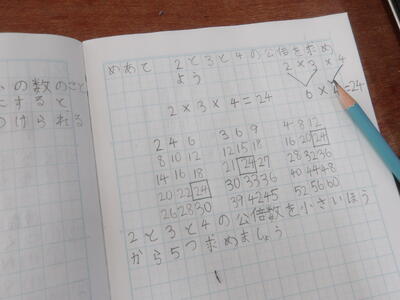 いの数のこと
にすると、
つけられる
めあて 2と3と4の公倍を求め
よう
2×3×4
6×4=24
2×3×4=24
2 4 6 3 6 9 4 8 12
8 10 12 12 15 18 16 20 24
14 16 18 21 24 27 28 32 36
20 22 24 30 33 36 40 44 48
26 28 30 39 42 45 52 56 60
2と3と4の公倍数を小さいほう
から5つ求めましょう